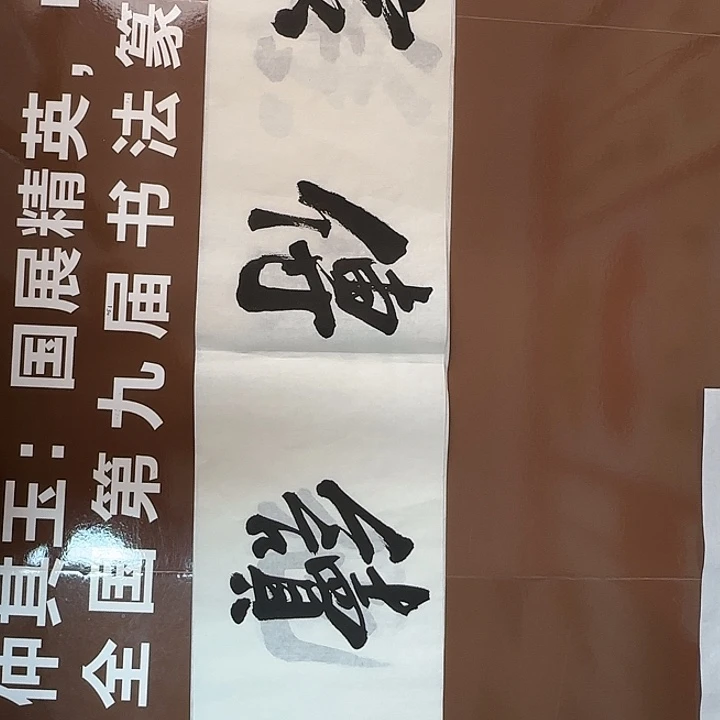 仲其玉：国展精英，
全国第九届书法篆
傳續